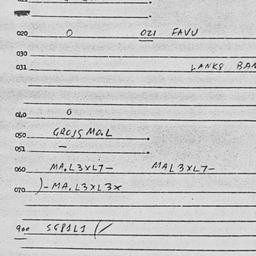 020 0 021 FAVU
030
031 LANKS BAN
040 0
050 GROSS MO.L
051 —
060 MA.L3XL7- MAL3XL7-
070 )-MA.L3XL3X
900 SSP1L1 (/